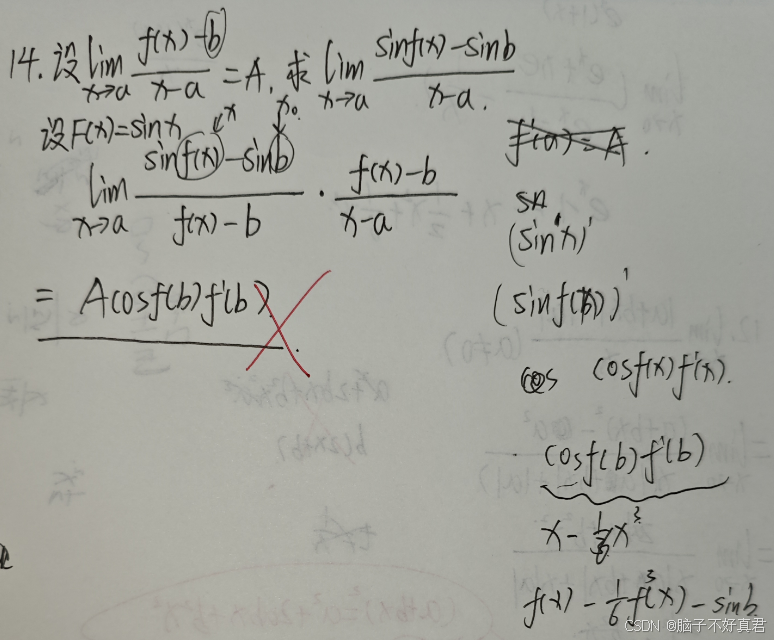 14. 设 lim x→a f(x)-b / x-a = A, 求 lim x→a sinf(x)-sinb / x-a.
设F(x)=sinx x x₀
lim x→a sinf(x)-sinb / f(x)-b · f(x)-b / x-a
= Acosf(b)f'(b)
f'(a)=A.
(sin x)'
(sinf(x))'
cos cosf(x)f'(x).
cosf(b)f'(b)
x - 1/6 x³
f(x) - 1/6 f³(x) - sinb
CSDN @脑子不好真君